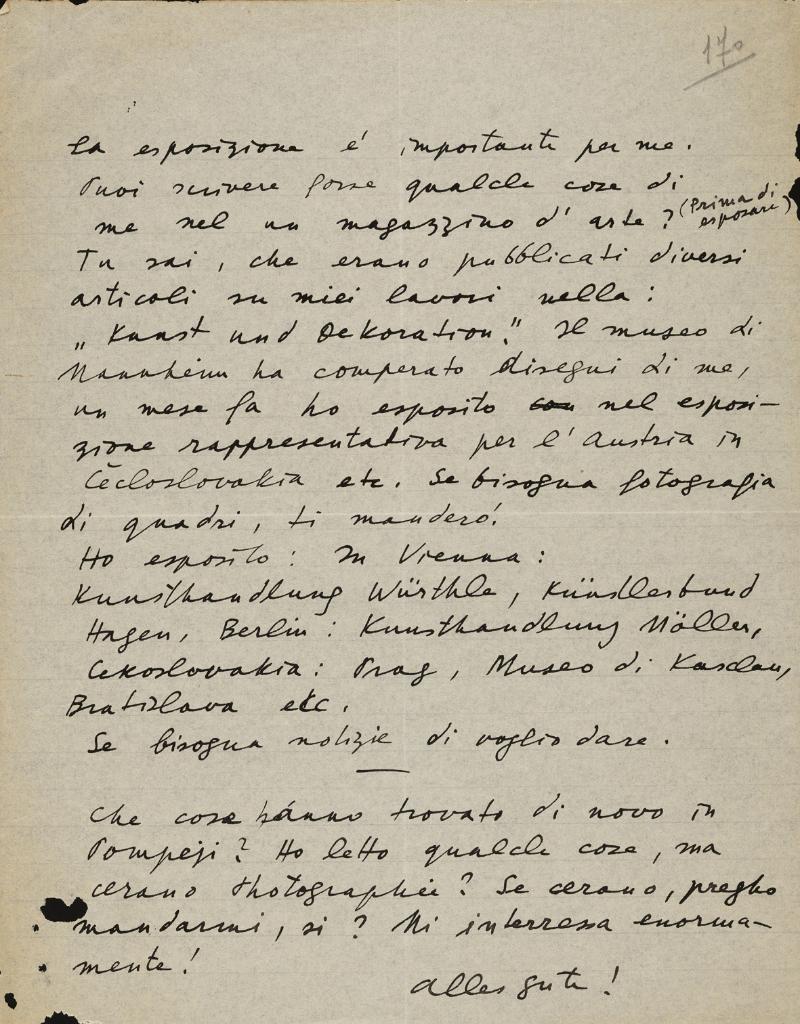 170
La esposizione é importante per me.
Puoi scrivere forse qualche cose di
me nel un magazzino d' arte? (Prima di esposare)
Tu sai, che erano pubblicati diversi
articoli su miei lavori nella:
„Kunst und Dekoration". Il museo di
Mannheim ha comperato disegni di me,
un mese fa ho esposito nel esposi-
zione rappresentativa per l' Austria in
Cĕcloslovakia etc. Se bisogna fotografia
di quadri, ti manderó.
Ho esposito: In Vienna:
Kunsthandlung Würthle, Künstlerbund
Hagen, Berlin: Kunsthandlung Möller,
Cekoslovakia: Prag, Museo di Kaschau,
Bratislava etc.
Se bisogna notizie di voglio dare.
Che cose hánno trovato di novo in
Pompeji? Ho letto qualche coze, ma
cerano Photographie? Se cerano, pregho
mandarmi, si? Mi interressa enorma-
mente!
Alles gute!